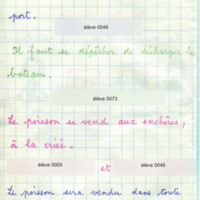 port.
élève 0046
Il faut se dépêcher de décharger le
bateau.
élève 0073
Le poisson se vend aux enchères,
à la criée.
élève 0005 et élève 0046
Le poisson sera vendu dans toute